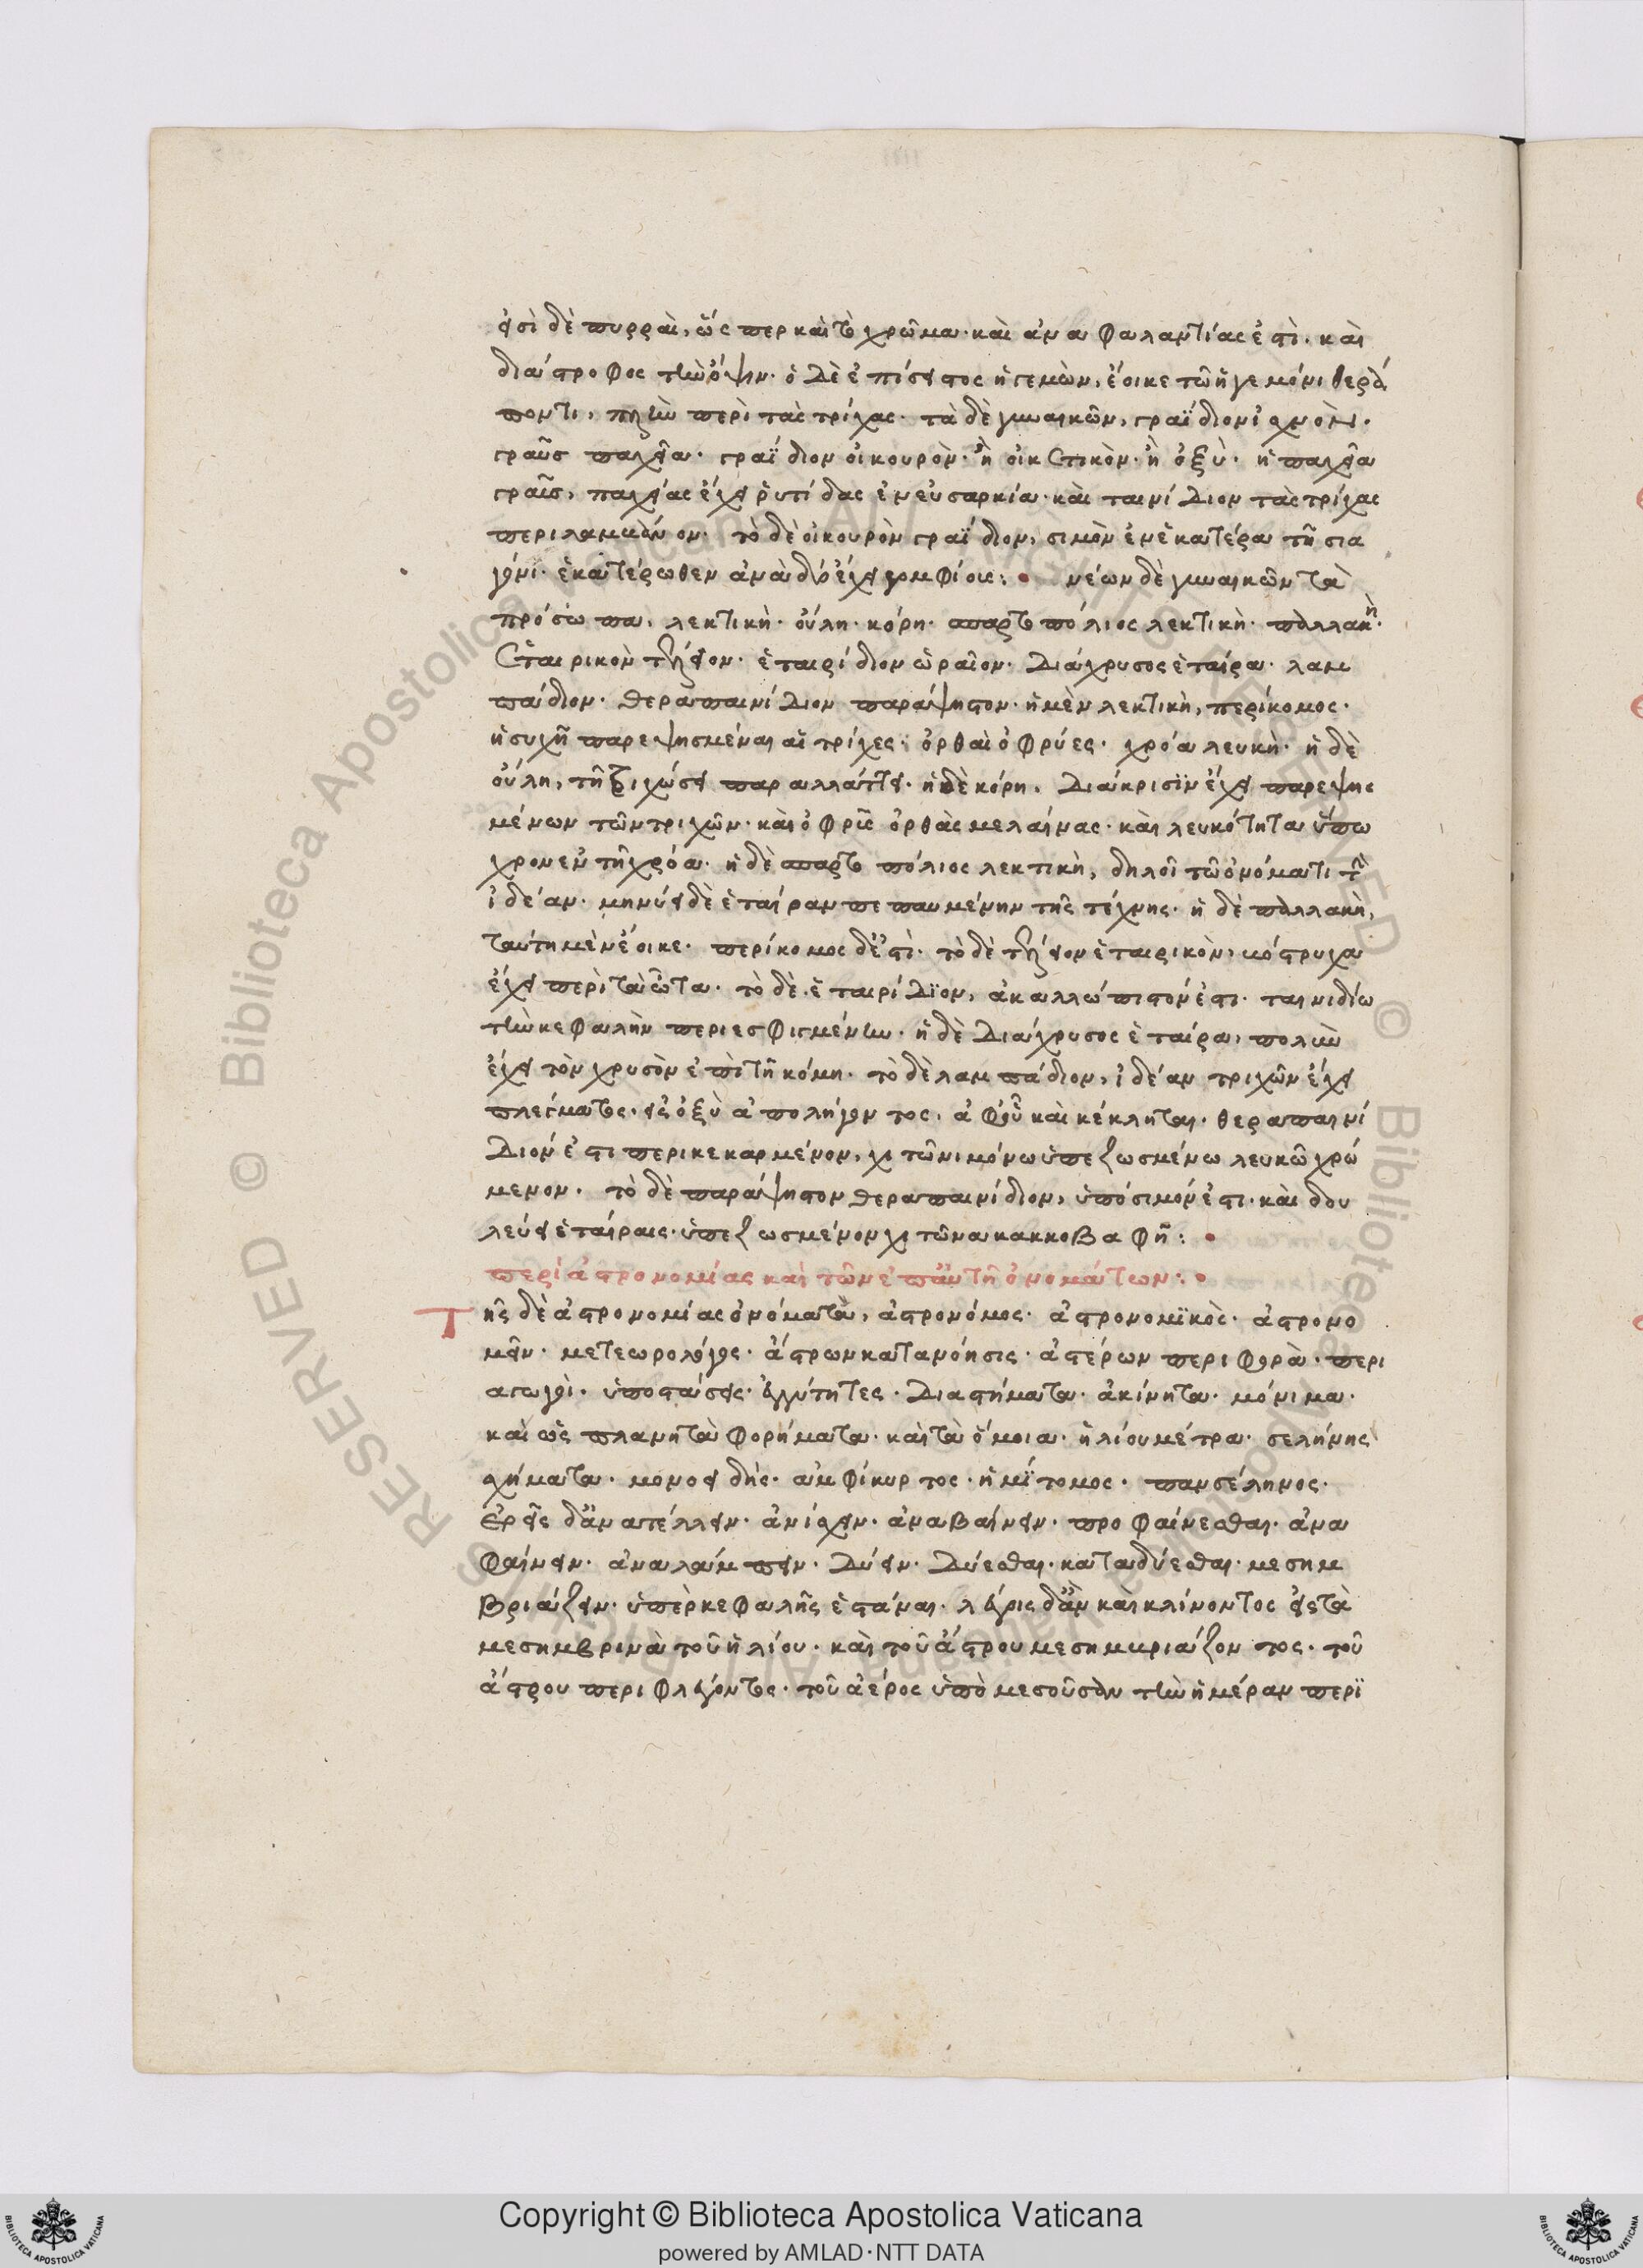 εἰσὶ δὲ πυρραὶ, ὥς περ καὶ τὸ χρῶμα· καὶ ἀνα φαλαντίας ἐστὶ· καὶ
διάστροφος τὴν ὄψιν· ὁ δὲ ἐπίσειστος ἡγεμὼν, ἔοικε τῶ ἡγεμόνι θερά
ποντι, πλὴν περὶ τὰς τρίχας· τὰ δὲ γυναικῶν, γραΐδιον ἰσχνὸν·
γραῦς παχεῖα· γραΐδιον οἰκουρὸν· ἢ οἰκετικὸν· ἢ ὀξὺ· ἡ παχεῖα
γραῦς, παχείας ἔχει ῥυτίδας ἐν εὐσαρκία· καὶ ταινίδιον τὰς τρίχας
περιλαμβάνον· τὸ δὲ οἰκουρὸν γραΐδιον, σιμὸν ἐν ἑκατέρα τῆ σια
γόνι· ἑκατέρωθεν ἀνὰ δύο ἔχει γομφίους: νέων δὲ γυναικῶν τὰ
πρόσωπα, λεκτικὴ· οὔλη· κόρη· σπαρτοπόλιος λεκτικὴ· παλλακὴ·
ἑταιρικὸν τέλειον· ἑταιρίδιον ὡραῖον· διάχρυσος ἑταίρα· λαμ
πάδιον· θεραπαινίδιον παράψηστον· ἡ μὲν λεκτικὴ, περίκομος·
ἡσυχῆ παρεψησμέναι αἱ τρίχες· ὀρθαὶ ὀφρύες· χρόα λευκὴ· ἡ δὲ
οὔλη, τῆ τριχώσει παραλλάττει· ἡ δὲ κόρη, διάκρισιν ἔχει παρεψησ
μένων τῶν τριχῶν· καὶ ὀφρῦς ὀρθὰς μελαίνας· καὶ λευκότητα ὕπω
χρον ἐν τῆ χρόα· ἡ δὲ σπαρτοπόλιος λεκτικὴ, δηλοῖ τῶ ὀνόματι τὴν
ἰδέαν· μηνύει δὲ ἑταίραν πεπαυμένην τῆς τέχνης· ἡ δὲ παλλακὴ,
ταύτη μὲν ἔοικε· περίκομος δέ ἐστὶ· τὸ δὲ τέλειον ἑταιρικὸν, βόστρυχα
ἔχει περὶ τὰ ὦτα· τὸ δὲ ἑταιρίδιον, ἀκαλλώπιστόν ἐστι· ταινιδίω
τὴν κεφαλὴν περιεσφιγμένον· ἡ δὲ διάχρυσος ἑταίρα, πολὺν
ἔχει τὸν χρυσὸν ἐπὶ τῆ κόμη· τὸ δὲ λαμπάδιον, ἰδέαν τριχῶν ἔχει
πλέγματος· εἰς ὀξὺ ἀπολήγοντος, ἀφ' οὗ καὶ κέκληται· θεραπαινί
διόν ἐστι περικεκαρμένον, χιτῶνι μόνω ὑπεζωσμένω λευκῶ χρώ
μενον· τὸ δὲ παράψηστον θεραπαινίδιον, ὑπόσιμόν ἐστι· καὶ δου
λεύει ἑταίραις· ὑπεζωσμένον χιτῶνα κακκοβαφῆ:
περὶ ἀστρονομίας καὶ τῶν ἐπ' αὐτῆ ὀνομάτων:
Τῆς δὲ ἀστρονομίας ὀνόματα, ἀστρονόμος· ἀστρονομϊκὸς· ἀστρονο
μεῖν· μετεωρολόγος· ἄστρων κατανόησις· ἀστέρων περιφορὰ· περι
αγωγὶ· ὑποστάσεις· ἐγγύτητες· διαστήματα· ἀκίνητα· μόνιμα·
καὶ ὡς πλανητὰ φορήματα· καὶ τὰ ὅμοια· ἡλίου μέτρα· σελήνης
σχήματα· μονοειδής· ἀμφίκυρτος· ἡμίτομος· πανσέληνος·
ἐρεῖς δ' ἂν ἀνατέλλειν· ἀνίσχειν· ἀναβαίνειν· προφαίνεσθαι· ἀνα
φαίνειν· ἀναλάμπειν· δύειν· δύεσθαι· καταδύεσθαι· μεσημ
βριάζειν· ὑπὲρ κεφαλῆς ἑστάναι· λέγοις δ' ἂν καὶ κλίνοντος εἰς τὰ
μεσημβρινὰ τοῦ ἡλίου· καὶ τοῦ ἄστρου μεσημβριάζοντος· τοῦ
ἄστρου περιφλέγοντος· τοῦ ἀέρος ὑπὸ μεσοῦσαν τὴν ἡμέραν περὶ
Copyright © Biblioteca Apostolica Vaticana
powered by AMLAD·NTT DATA